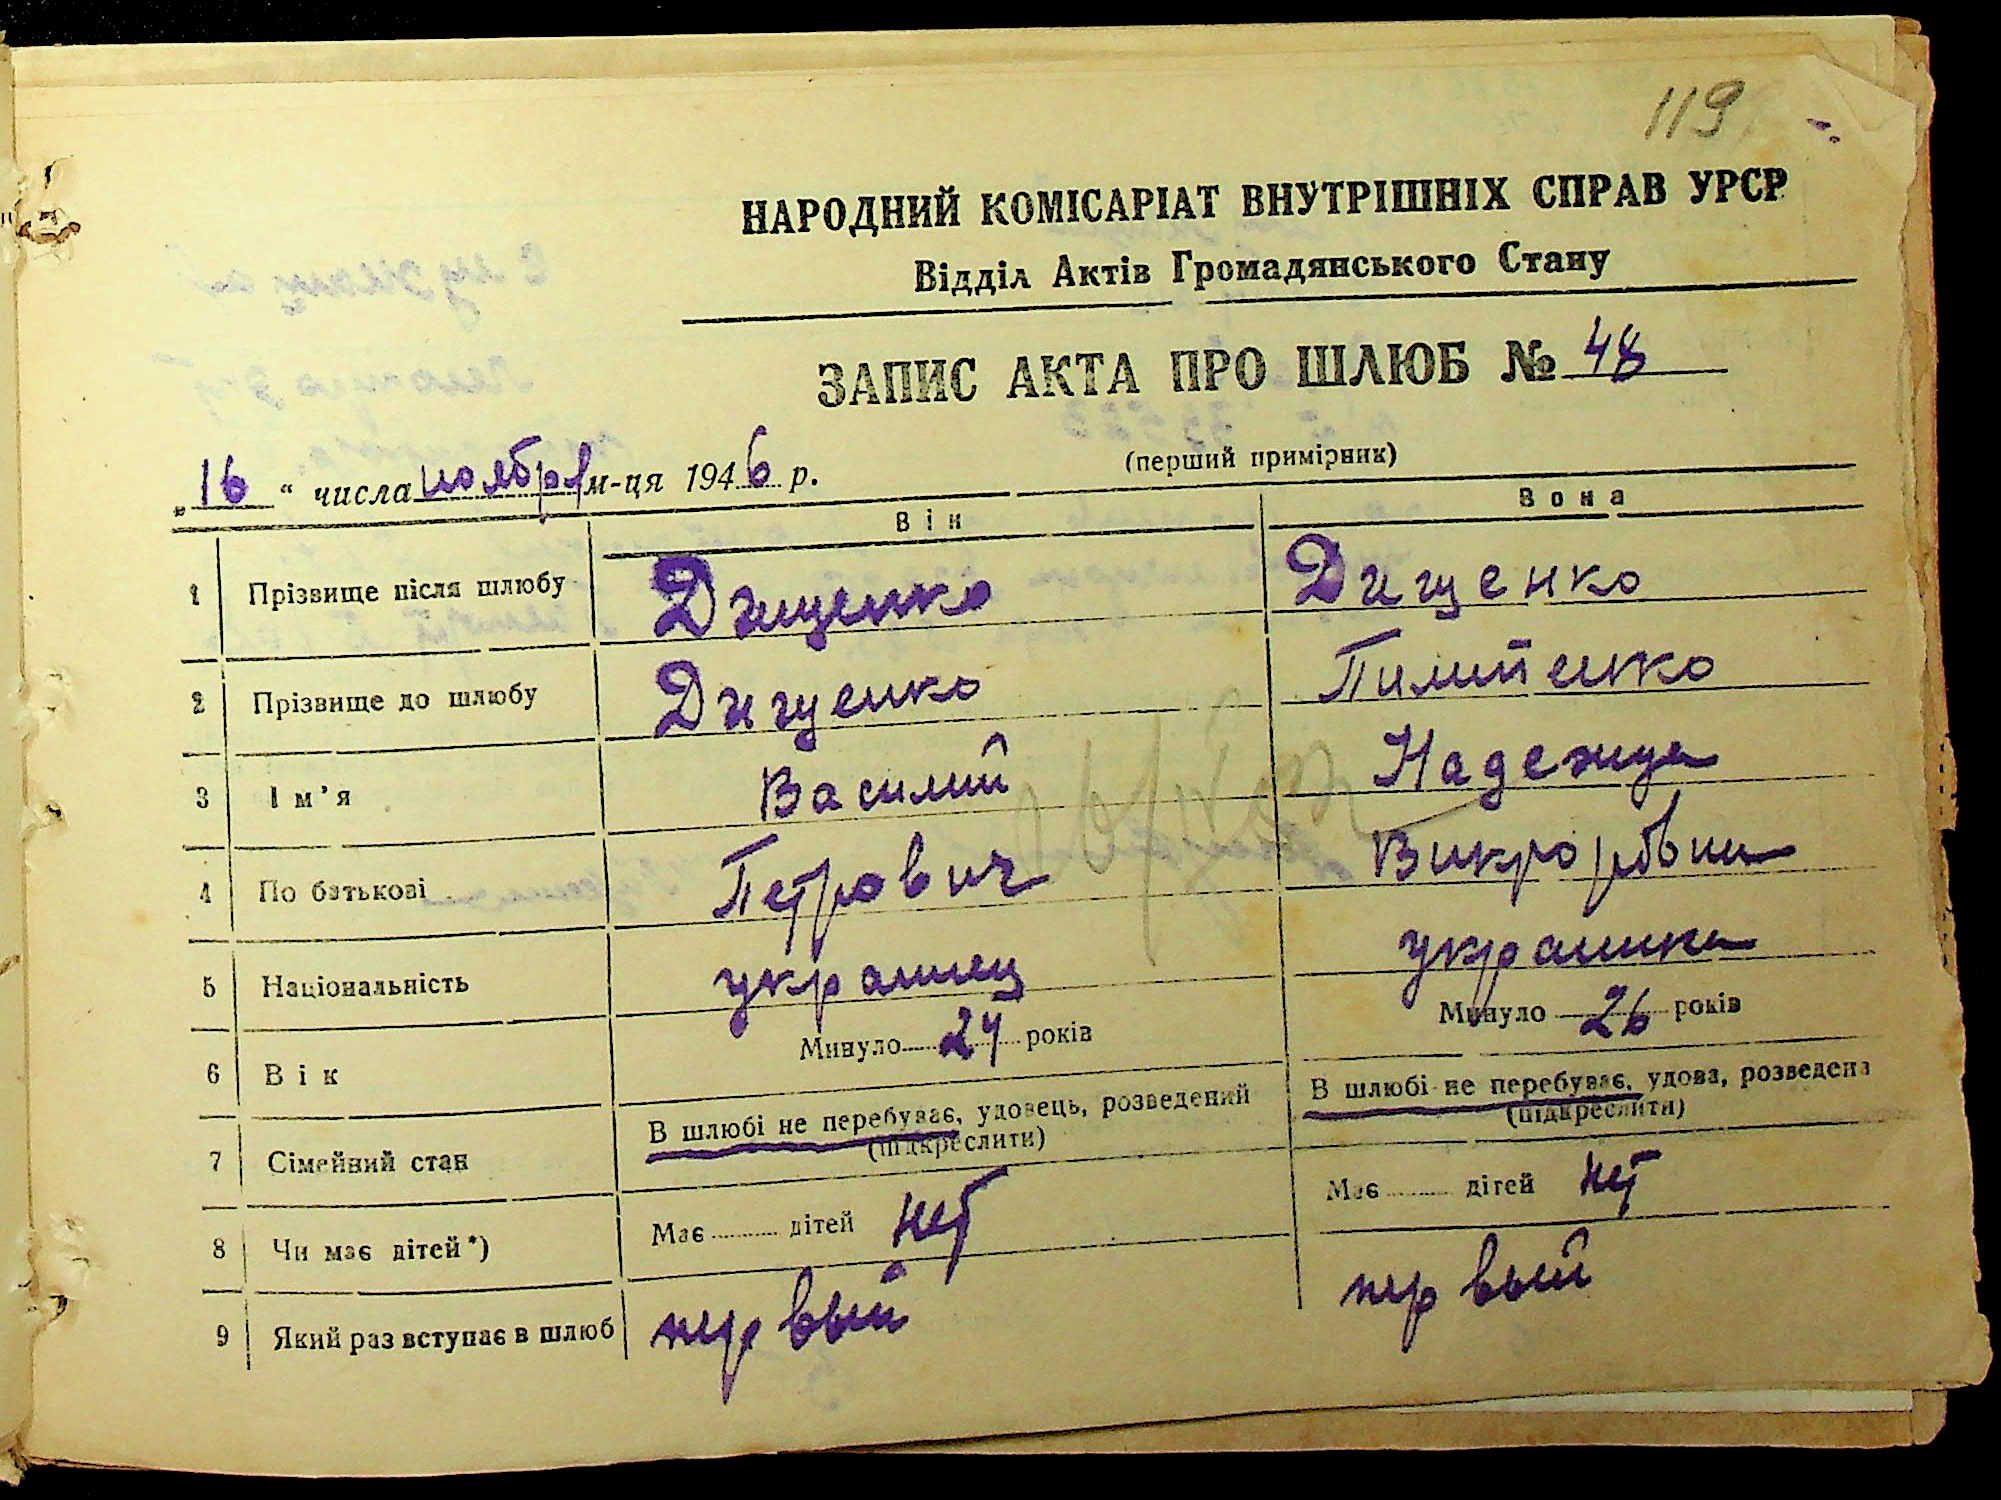 119
НАРОДНИЙ КОМІСАРІАТ ВНУТРІШНІХ СПРАВ УРСР
Відділ Актів Громадянського Стану
ЗАПИС АКТА ПРО ШЛЮБ № 48
(перший примірник)
„16“ числа ноября м-ця 1946 р.
Він Вона
1 Прізвище після шлюбу Дищенко Дищенко
2 Прізвище до шлюбу Дищенко Пилипенко
3 Ім'я Василий Надежда
4 По батькові Петрович Викторовна
5 Національність украинец украинка
6 Вік Минуло 24 років Минуло 26 років
7 Сімейний стан В шлюбі не перебуває, удовець, розведений (підкреслити) В шлюбі не перебуває, удова, розведена (підкреслити)
8 Чи має дітей*) Має ... дітей нет Має ... дітей нет
9 Який раз вступає в шлюб первый первый